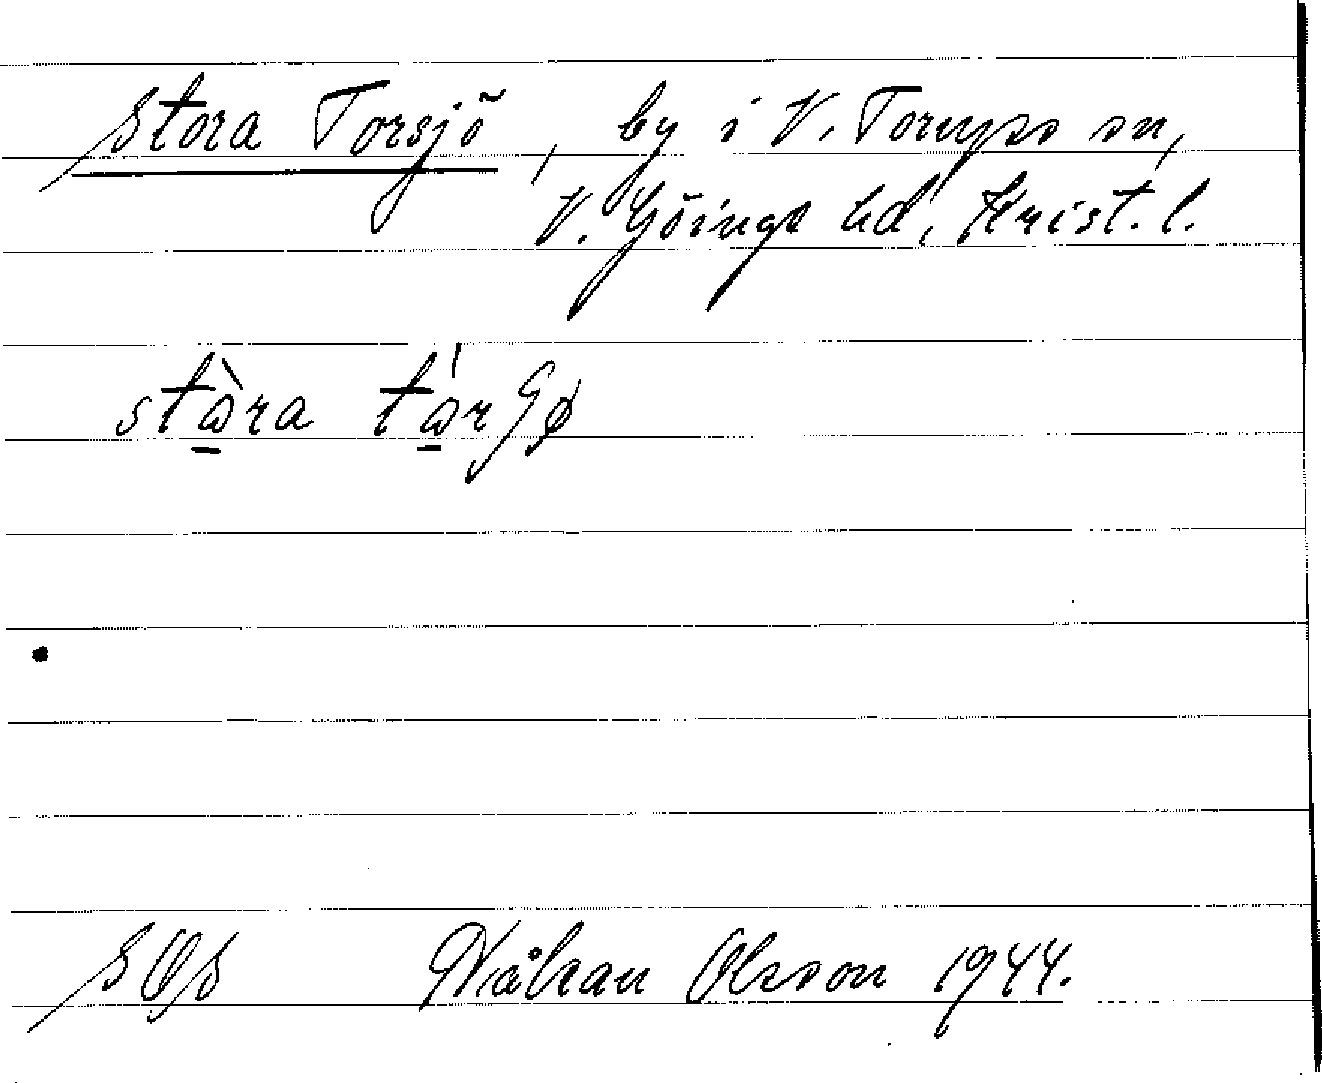 Stora Torsjö, by i V. Torups sn,
V. Göinge hd, Krist. l.
stɷ̀ra tɷ́rʃø
Håkan Olsson 1944.